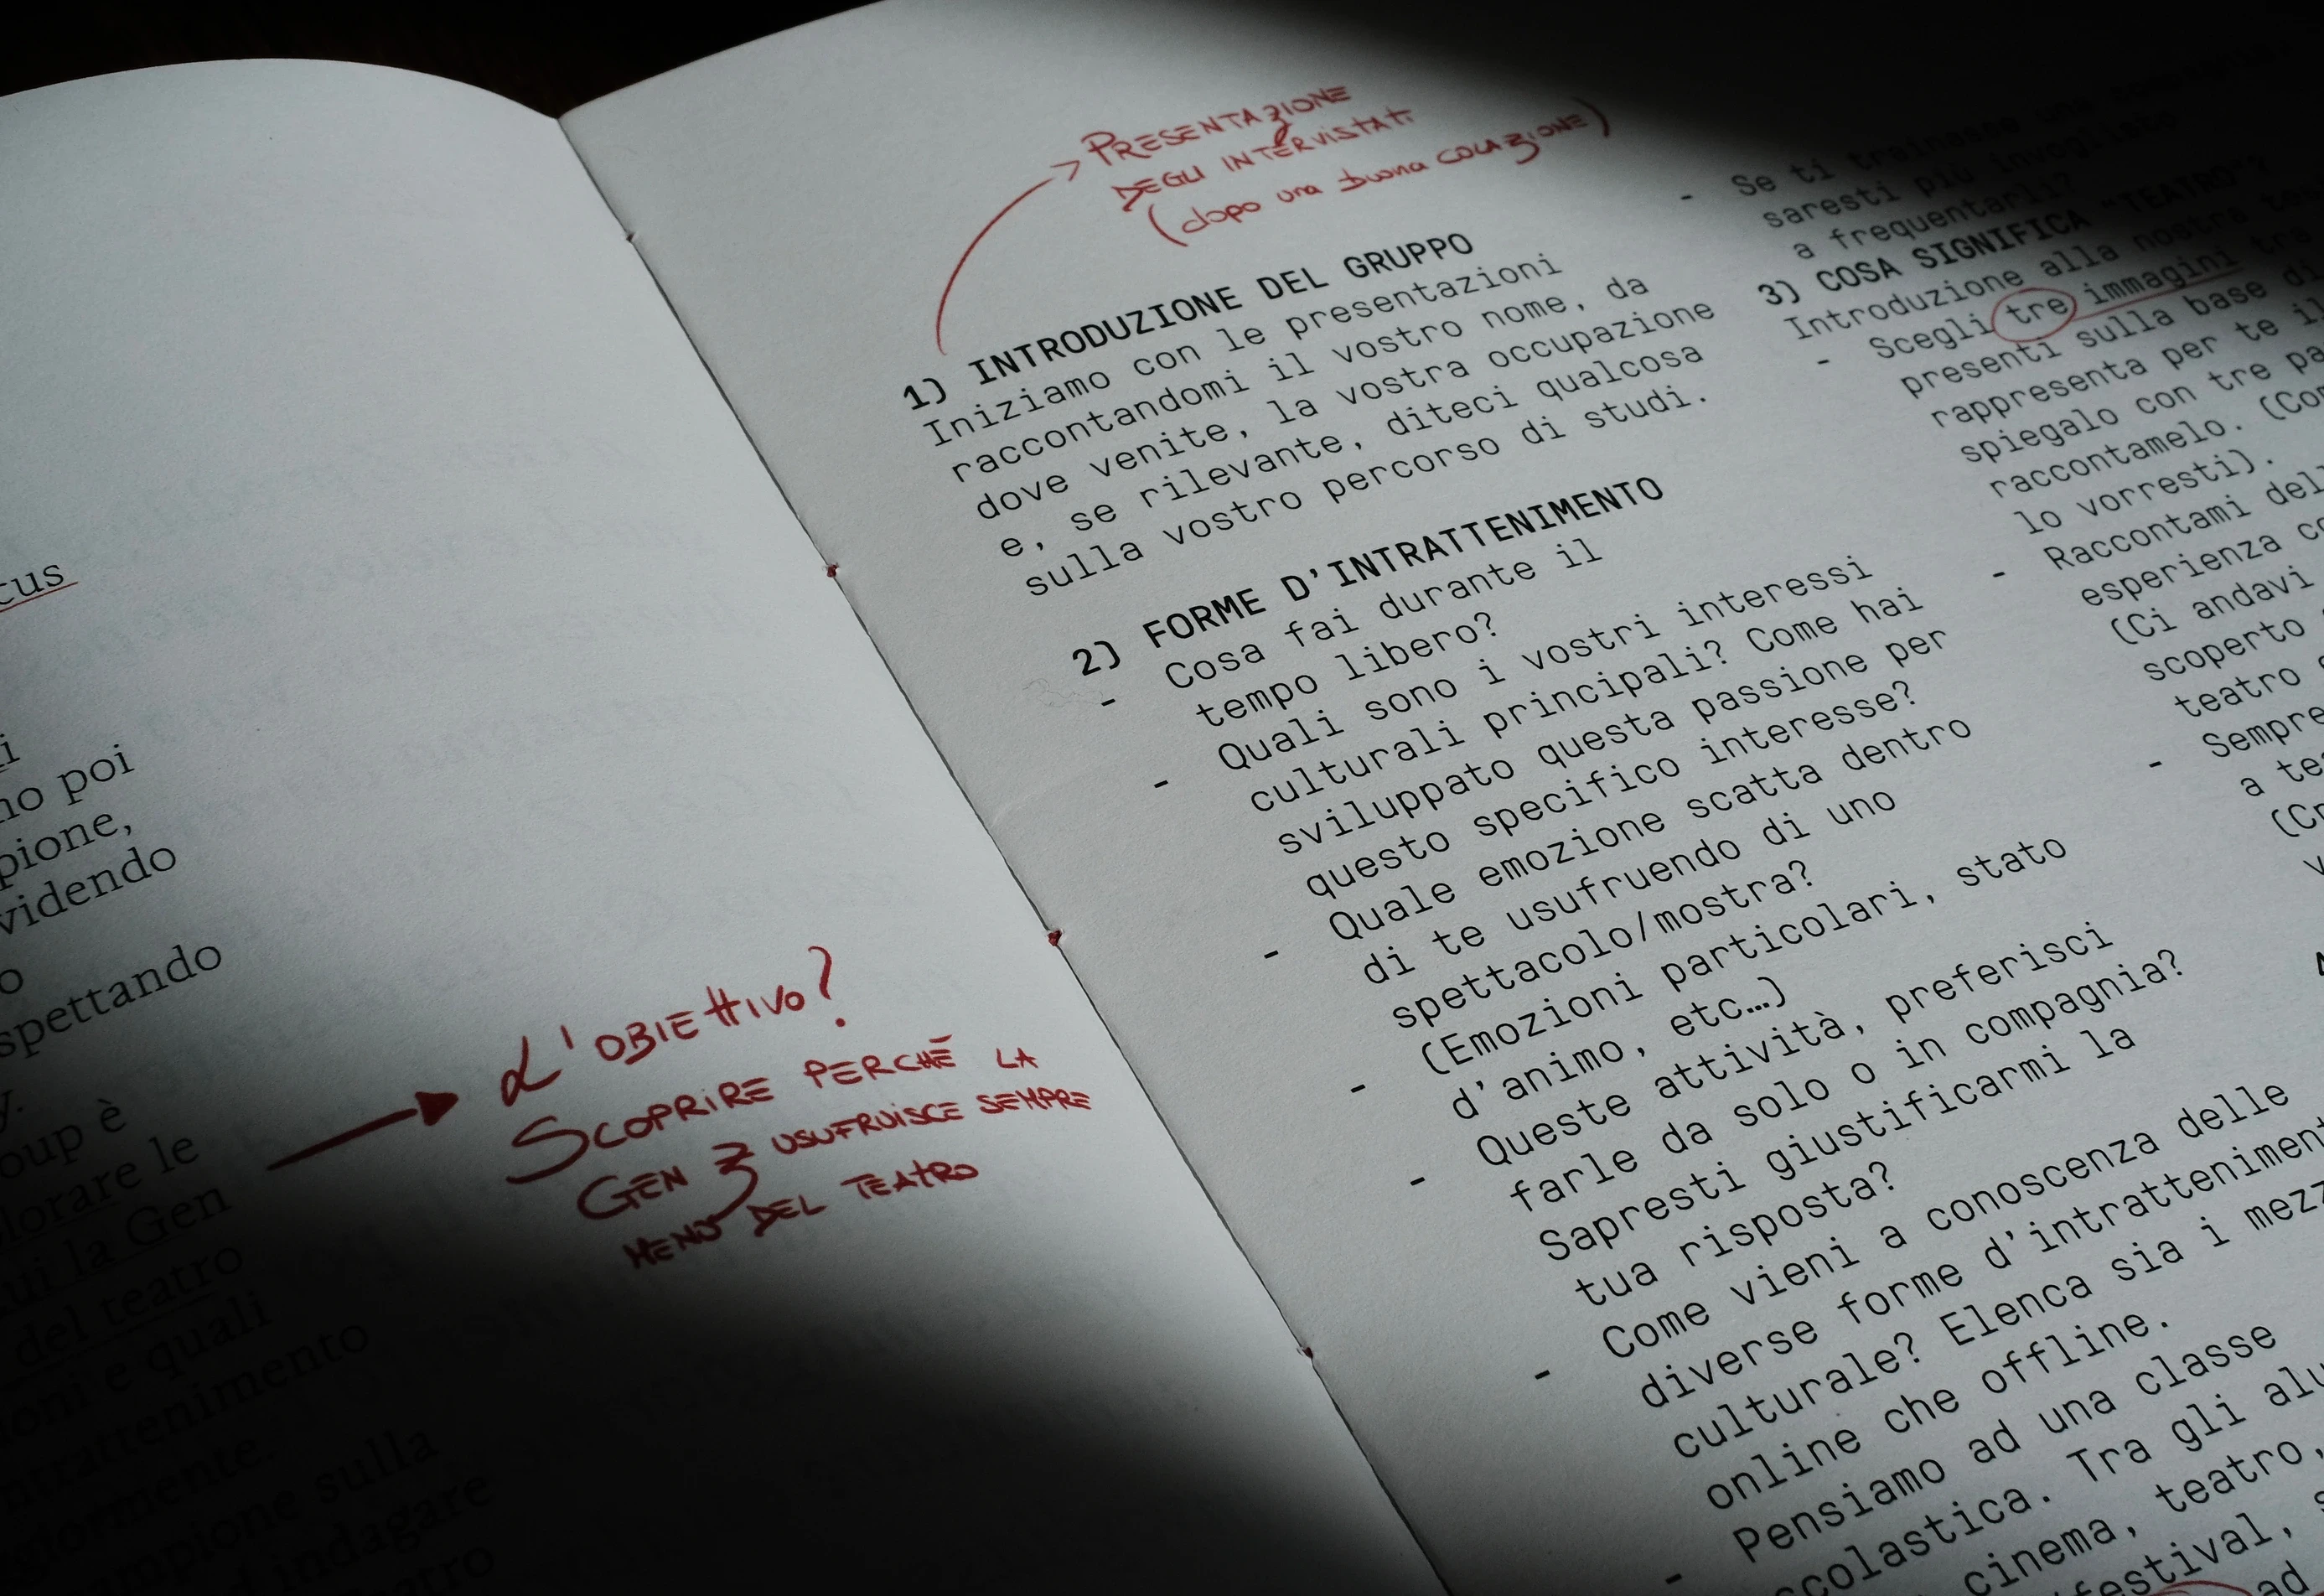 cus
i
no poi
pione,
videndo
o
spettando
y.
oup è
lorare le
ui la Gen
del teatro
oni e quali
ntrattenimento
giormente.
ampione sulla
d indagare
teatro
L'OBIETTIVO?
SCOPRIRE PERCHÉ LA
GEN Z USUFRUISCE SEMPRE
MENO DEL TEATRO
PRESENTAZIONE
DEGLI INTERVISTATI
(dopo una buona colazione)
1) INTRODUZIONE DEL GRUPPO
Iniziamo con le presentazioni
raccontandomi il vostro nome, da
dove venite, la vostra occupazione
e, se rilevante, diteci qualcosa
sulla vostro percorso di studi.
2) FORME D'INTRATTENIMENTO
- Cosa fai durante il
tempo libero?
- Quali sono i vostri interessi
culturali principali? Come hai
sviluppato questa passione per
questo specifico interesse?
- Quale emozione scatta dentro
di te usufruendo di uno
spettacolo/mostra?
- (Emozioni particolari, stato
d'animo, etc…)
- Queste attività, preferisci
farle da solo o in compagnia?
Sapresti giustificarmi la
tua risposta?
- Come vieni a conoscenza delle
diverse forme d'intratteniment
culturale? Elenca sia i mezz
online che offline.
- Pensiamo ad una classe
scolastica. Tra gli alu
cinema, teatro,
festival, s
ad
- Se ti
saresti più invogliato
a frequentarli?
3) COSA SIGNIFICA "TEATRO"?
Introduzione alla nostra
- Scegli tre immagini tra
presenti sulla base di
rappresenta per te il
spiegalo con tre pa
raccontamelo. (Com
lo vorresti).
- Raccontami del
esperienza co
(Ci andavi
scoperto
teatro
- Sempre
a te
(Cr